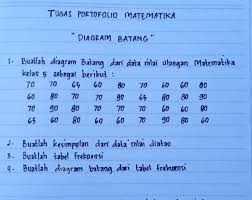 TUGAS PORTOFOLIO MATEMATIKA
"DIAGRAM BATANG"
1. Buatlah diagram Batang dari data nilai ulangan Matematika
kelas 5 sebagai berikut :
70 70 65 60 80 70 60 60 80
60 80 70 70 80 90 70 65 80
70 90 80 70 70 70 60 80 60
65 60 80 70 90 60 80 60 60
2. Buatlah kesimpulan dari data nilai diatas
3. Buatlah tabel frekuensi
4. Buatlah diagram batang dari tabel frekuensi